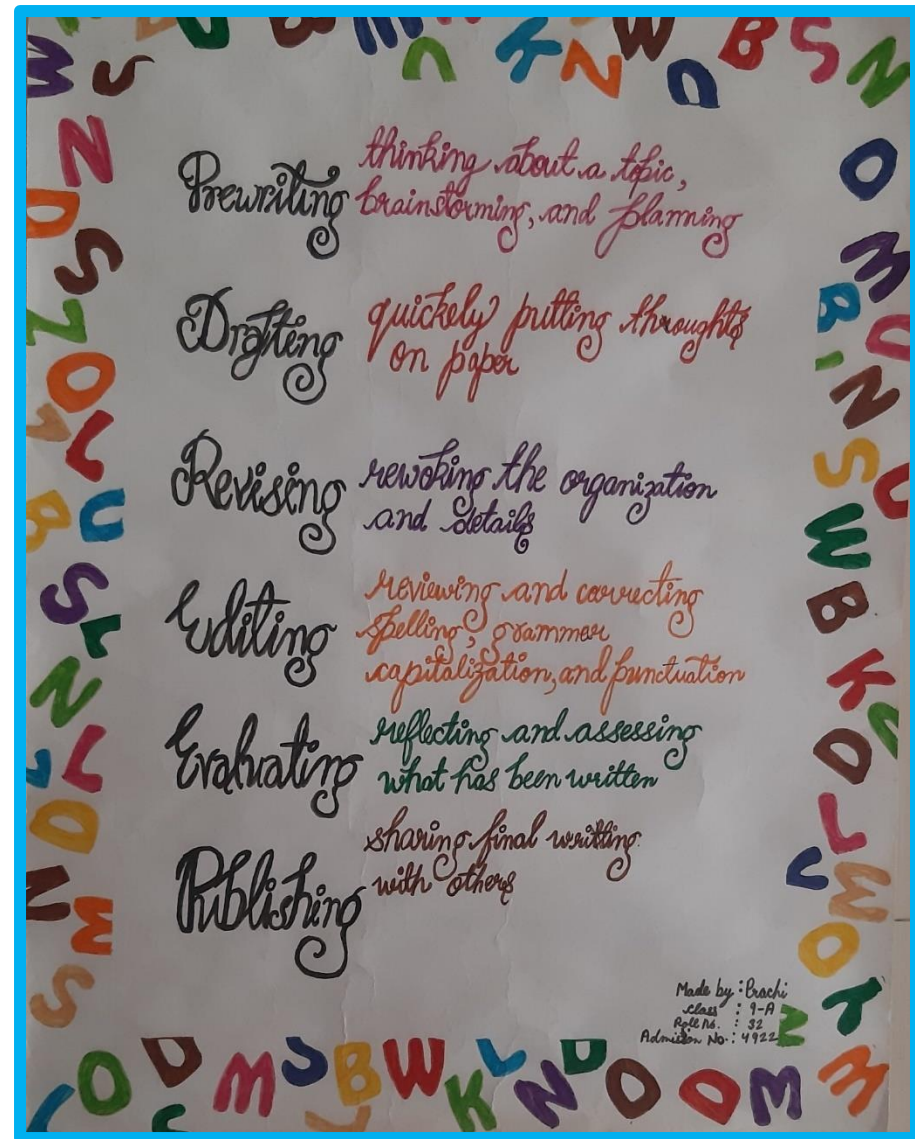 Prewriting thinking about a topic,
brainstorming, and planning
Drafting quickely putting throughts
on paper
Revising rewoking the organization
and details
Editing reviewing and correcting
spelling, grammer
capitalization, and punctuation
Evaluating reflecting and assessing
what has been written
Publishing sharing final writting
with others
Made by : Prachi
Class : 9-A
Roll No. : 32
Admission No. : 4922